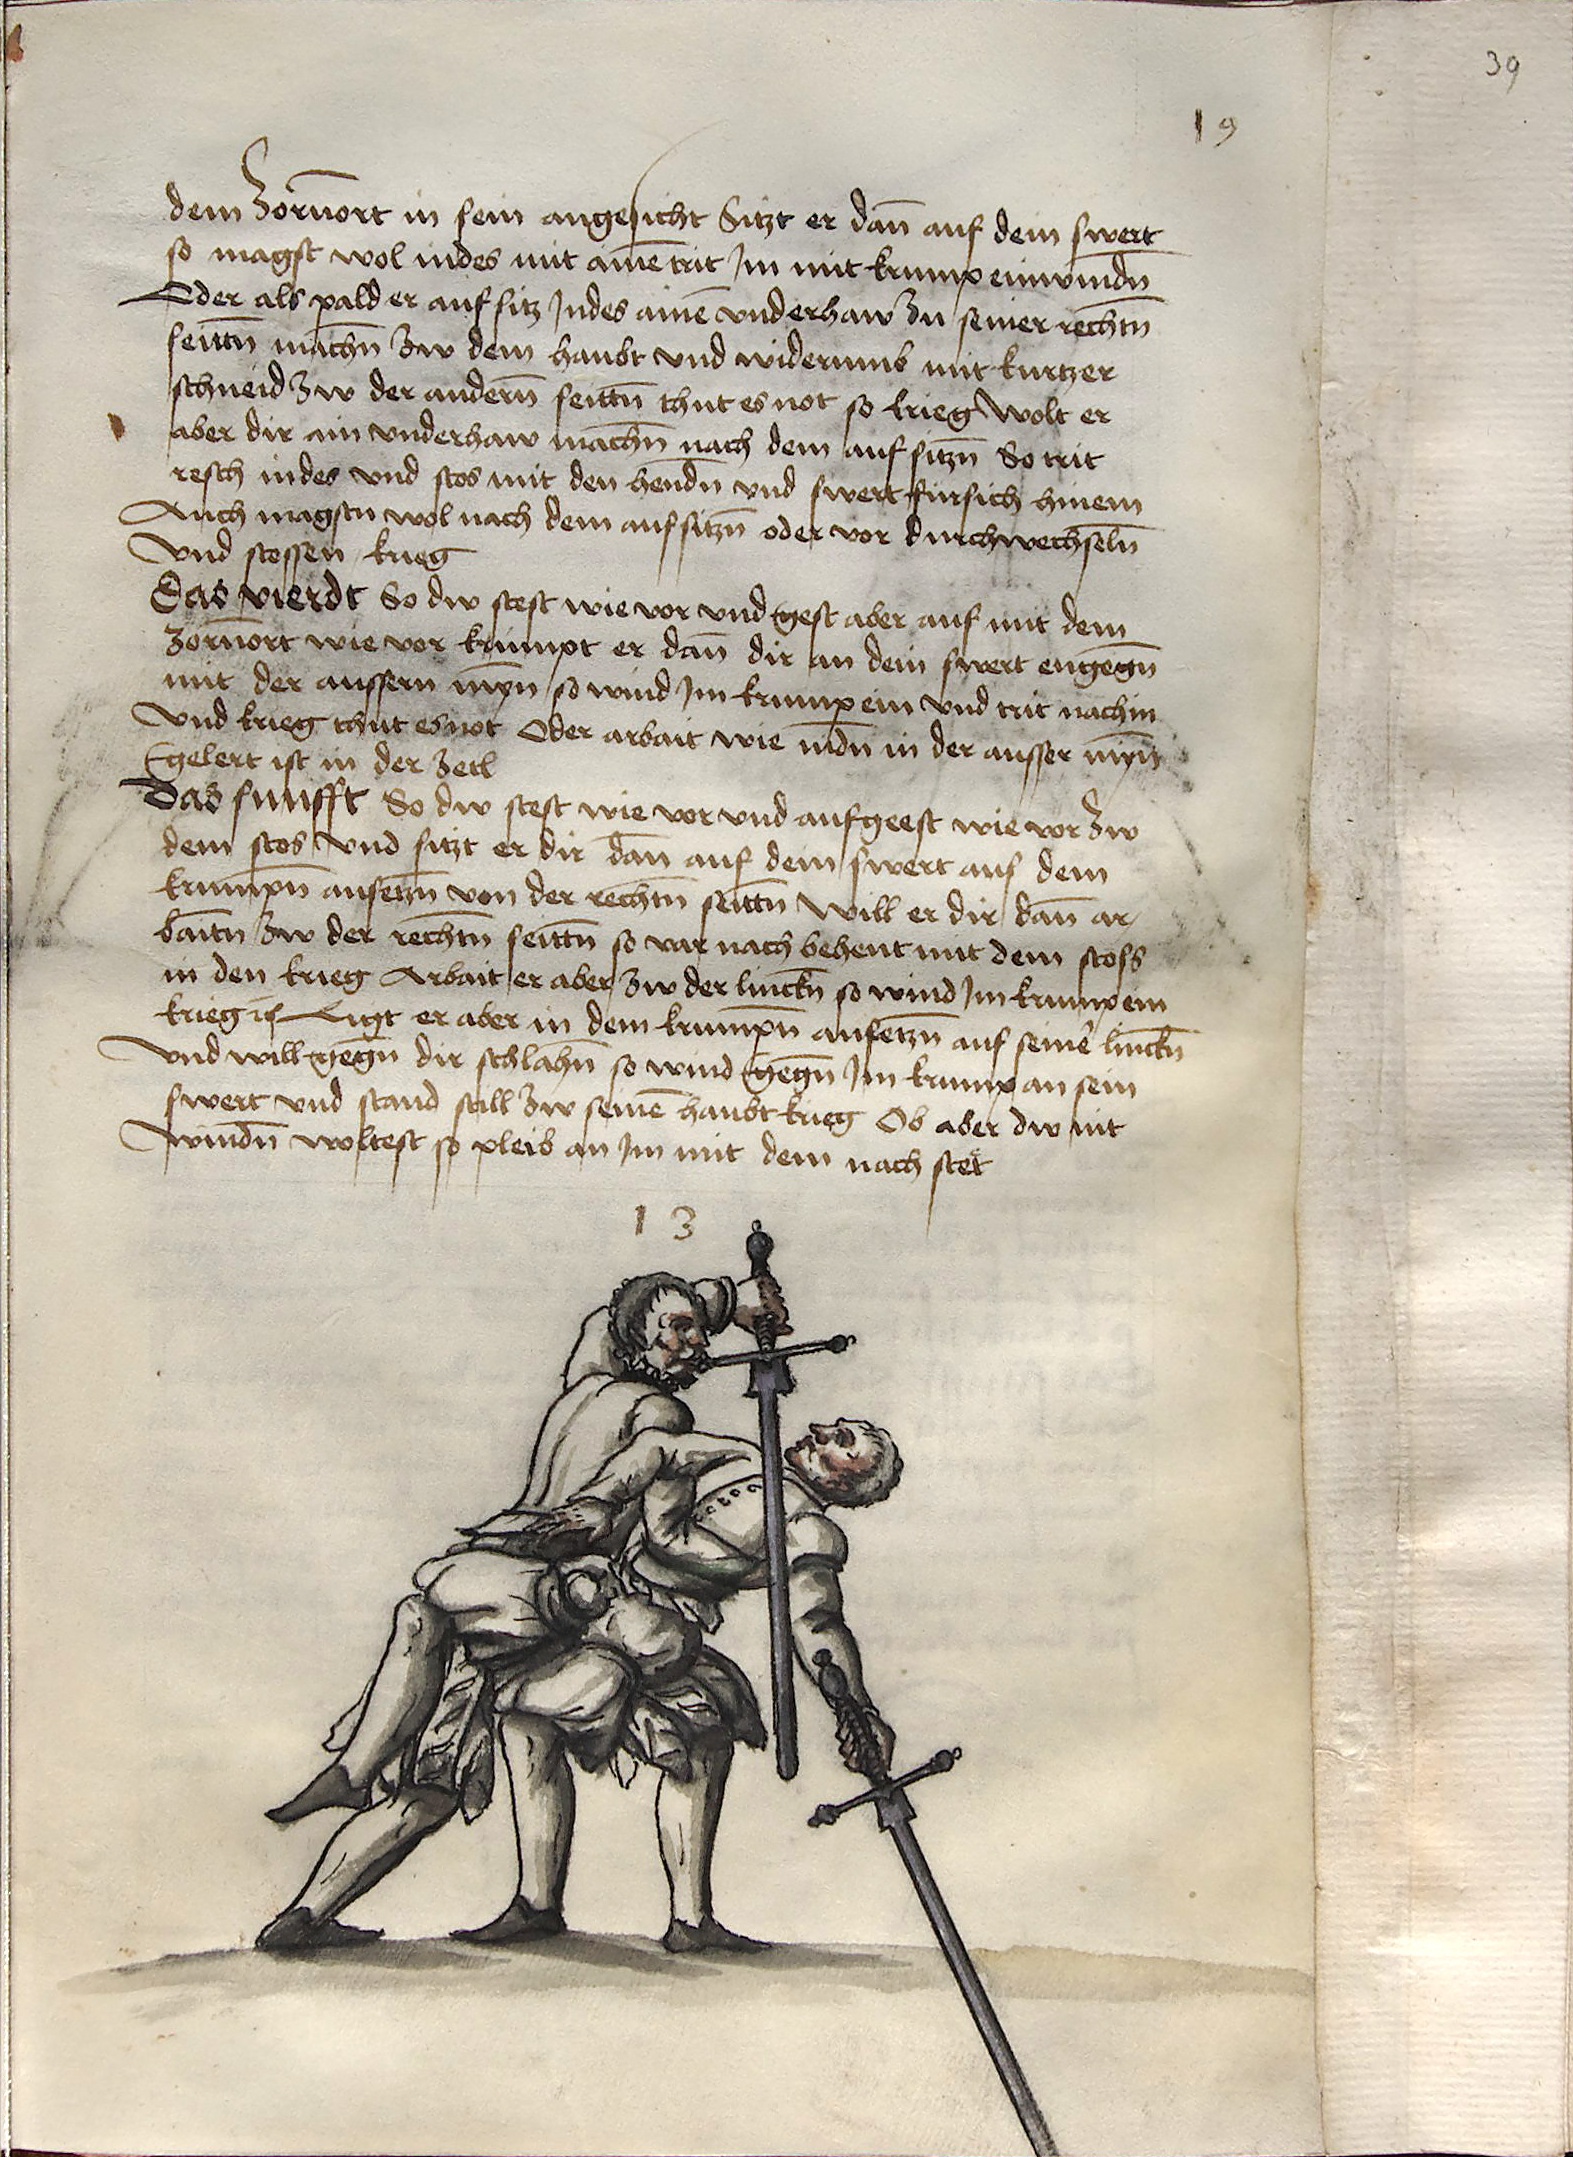 39
19
dem Zornort in sein angesicht Sitzt er dan̄ auf dein swert
so magst wol indes mit aine᷄ trit Im mit krump einwindn̄
Oder als pald er auf sitz Indes aine᷄ vnderhaw zu seiner rechtn̄
seittn̄ machn̄ zw dem haubt vnd widerumb mit kurtzer
schneid zw der andern̄ seittn̄ thut es not so krieg Wolt er
aber dir ain vnderhaw machn̄ nach dem auf sitzn̄ So trit
resch indes vnd stos mit den hendn̄ vnd swert fursich hinein
Auch magstu wol nach dem aufsitzn̄ oder vor durchwechseln̄
Vnd stossen krieg
Das vierdt So dw stest wie vor vnd gest aber auf mit dem
Zornort wie vor krumpt er dan̄ dir an dein swert engegn̄
mit der aussern myn̄ so wind Im krump ein vnd trit nachin
Vnd krieg thut es not Oder arbait wie in der ausser mynn
gelert ist in der Zetl
Das funfft So dw stest wie vor vnd aufgeest wie vor zw
dem stos Vnd sitzt er dir dan̄ auf dein swert auf dem
krumpn̄ ansetzn̄ von der rechtn̄ seittn̄ Will er dir dan̄ ar
baitn̄ zw der rechtn̄ seittn̄ so var nach behent mit dem stoss
in den krieg Arbait er aber zw der linckn̄ so wind Im krump ein
krieg Ligt er aber in dem krumpn̄ ansetzn̄ auf seine᷄ linckn̄
Vnd will gegn̄ dir schlahn̄ so wind gegn̄ Im krump an sein
swert vnd stand still zw seine᷄ haubt krieg Ob aber dw nit
Windn̄ woltest so pleib an Im mit dem nach stet
13